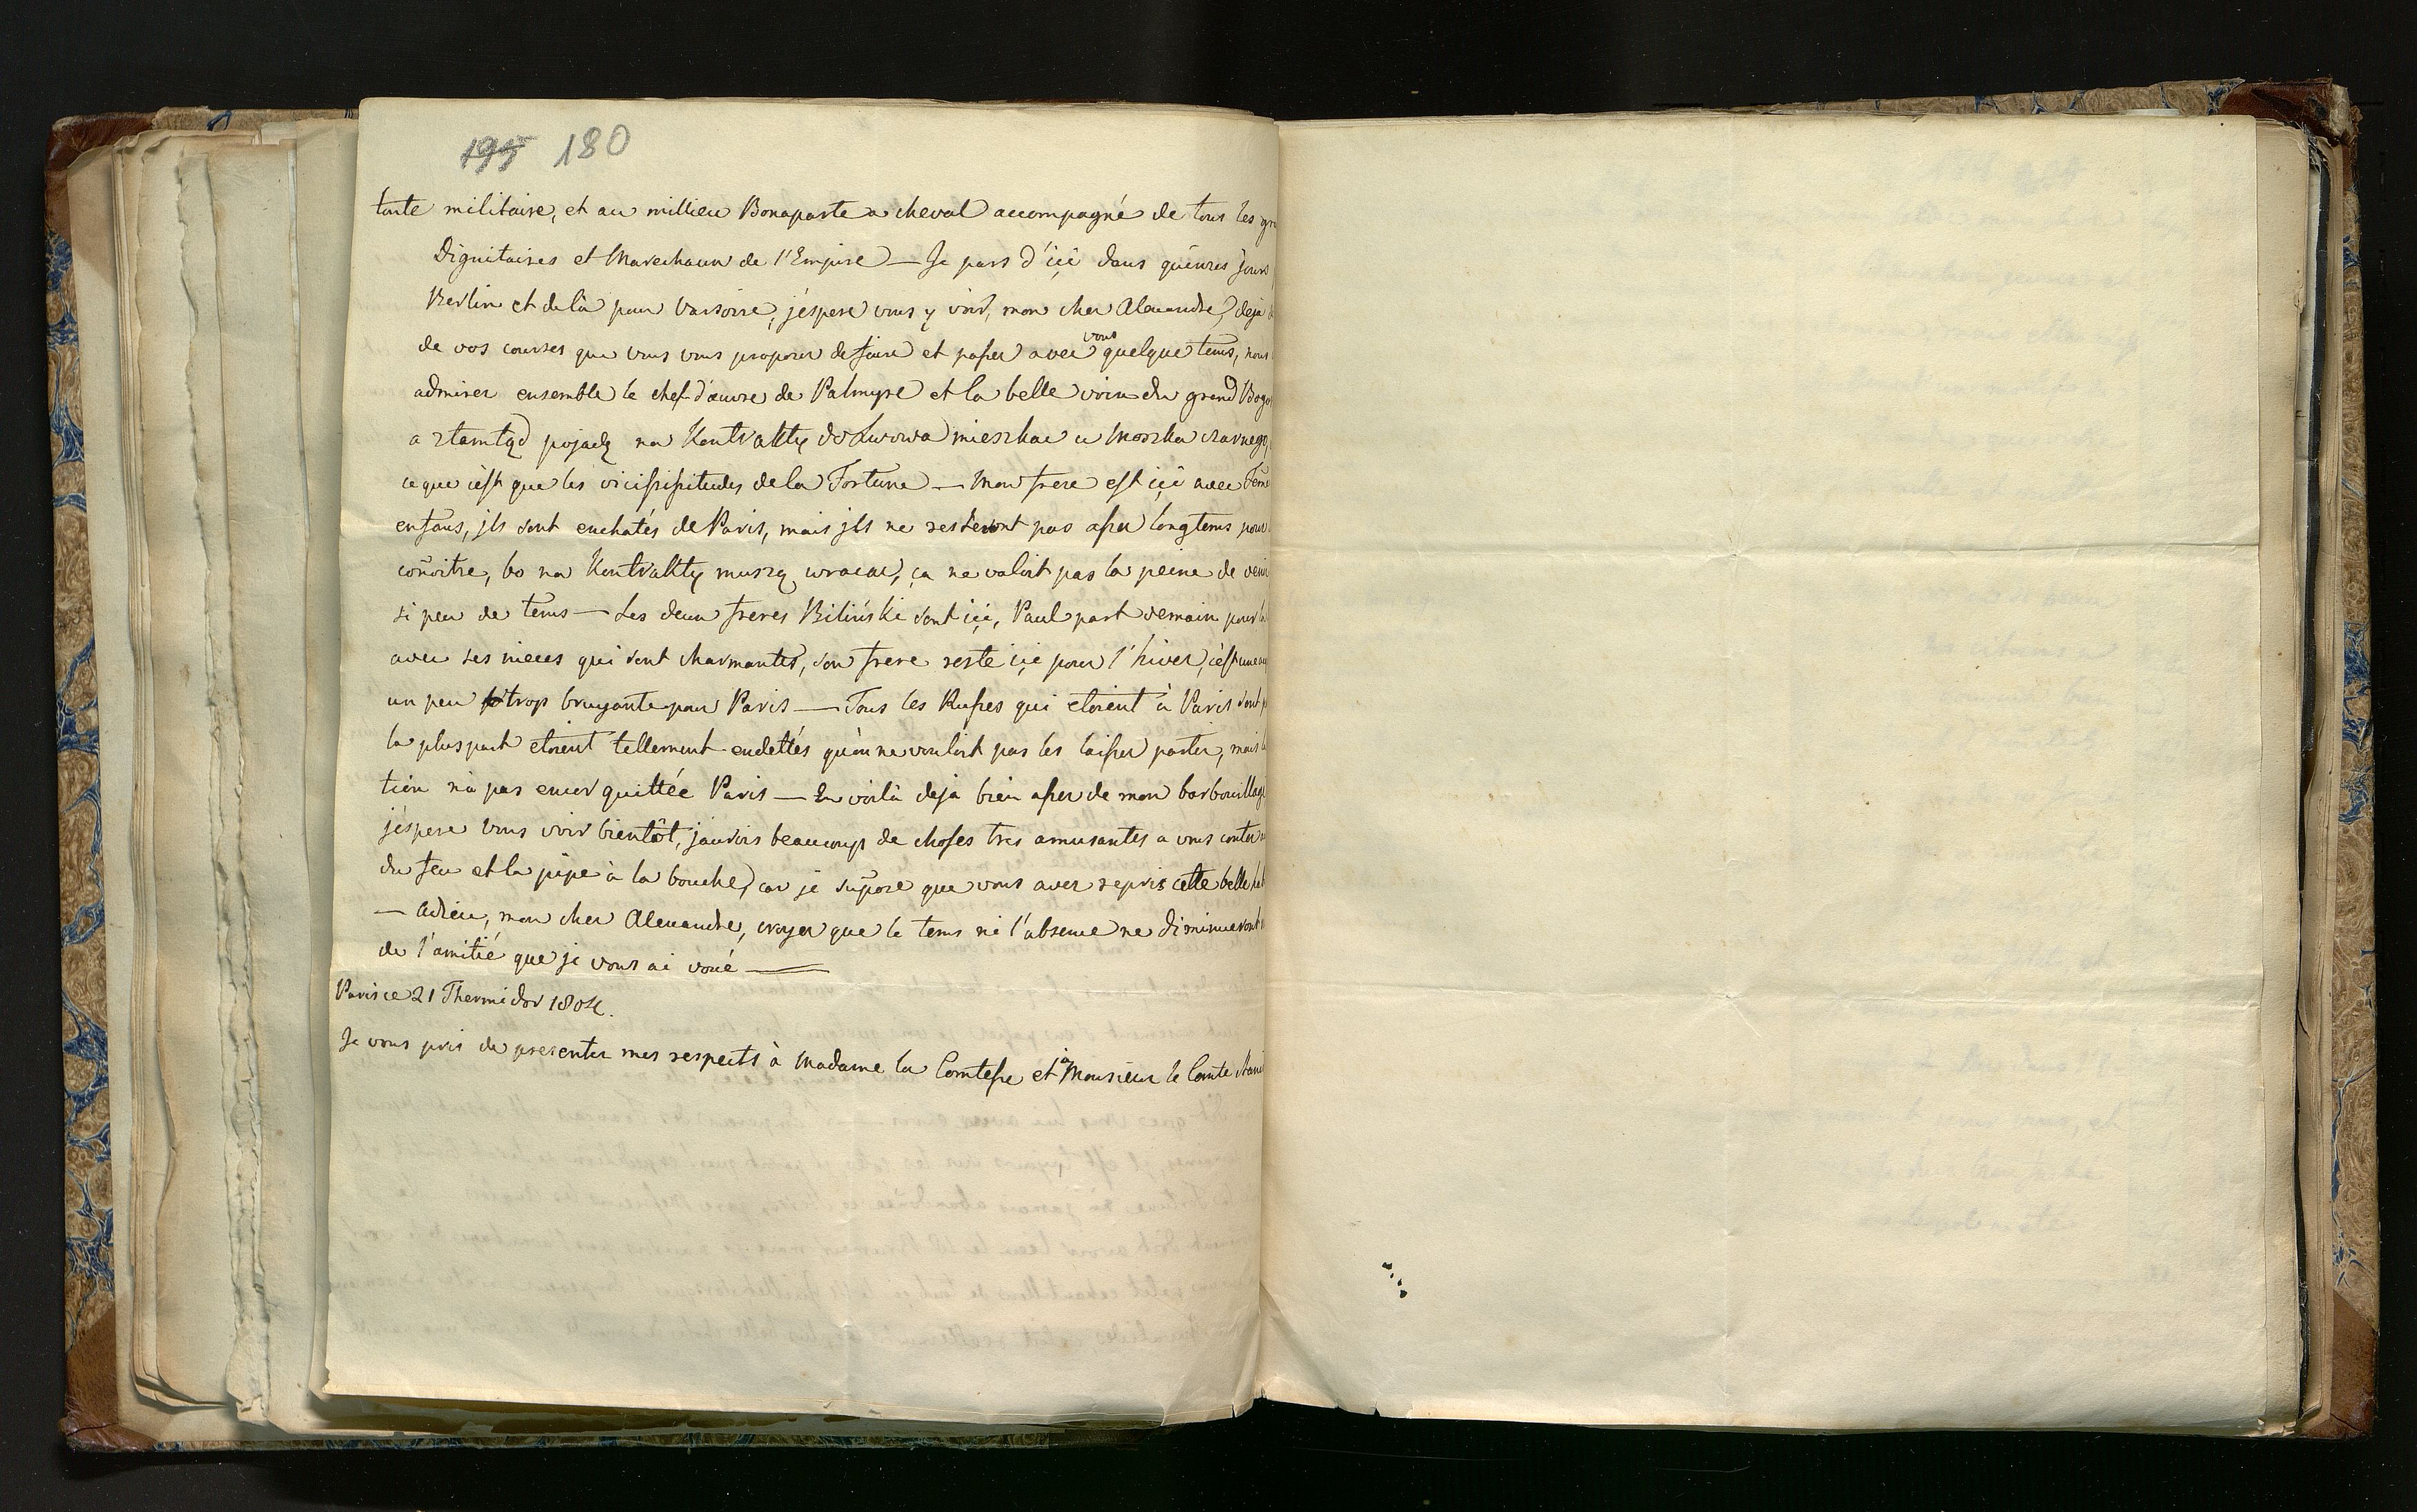 195 180
toute militaire, et au millieu Bonaparte a cheval accompagné de tous les
Dignitaires et Marechaux de l'Empire — Je pars d'içi dans quinze jours
Berlin et de là pour Varsovie, j'éspere vous y voir, mon cher Alexandre, deja
de vos courses que vous vous proposez de faire et passer avec vous quelque tems, nous
admirer ensemble le chef d'œuvre de Palmyre et la belle voix du grand
a ztamtąd pojadę na Kontrakty do Lwowa mieszkac u Moszka czarnego,
ce que c'est que les vicissisitudes de la Fortune — Mon frere est içi avec
enfans, jls sont enchatés de Paris, mais jls ne resteront pas assez longtems pour
coñoitre, bo na Kontrakty muszą wracac, ça ne valoit pas la peine de venir
si peu de tems — Les deux freres Biliński sont içi, Paul part demain pour
avec ses nieces qui sont charmantes, son frere reste içi pour l'hiver, c'est une
un peu trop bruyante pour Paris — Tous les Russes qui etoient à Paris sont
la pluspart etoient tellement endettés qu'on ne vouloit pas les laisser partir, mais
tion n'a pas encor quittée Paris — En voilà deja bien assez de mon barbouillage
j'éspere vous voir bientôt, j'aurois beaucoup de choses tres amusantes a vous conter
du feu et la pipe à la bouche, car je supose que vous avez repris cette belle
— Adieu, mon cher Alexandre, croyez que le tems ni l'absence ne diminueront
de l'amitié que je vous ai voué —
Paris ce 21 Thermidor 1804.
Je vous pris de presenter mes respects à Madame la Comtesse et à Monsieur le Comte